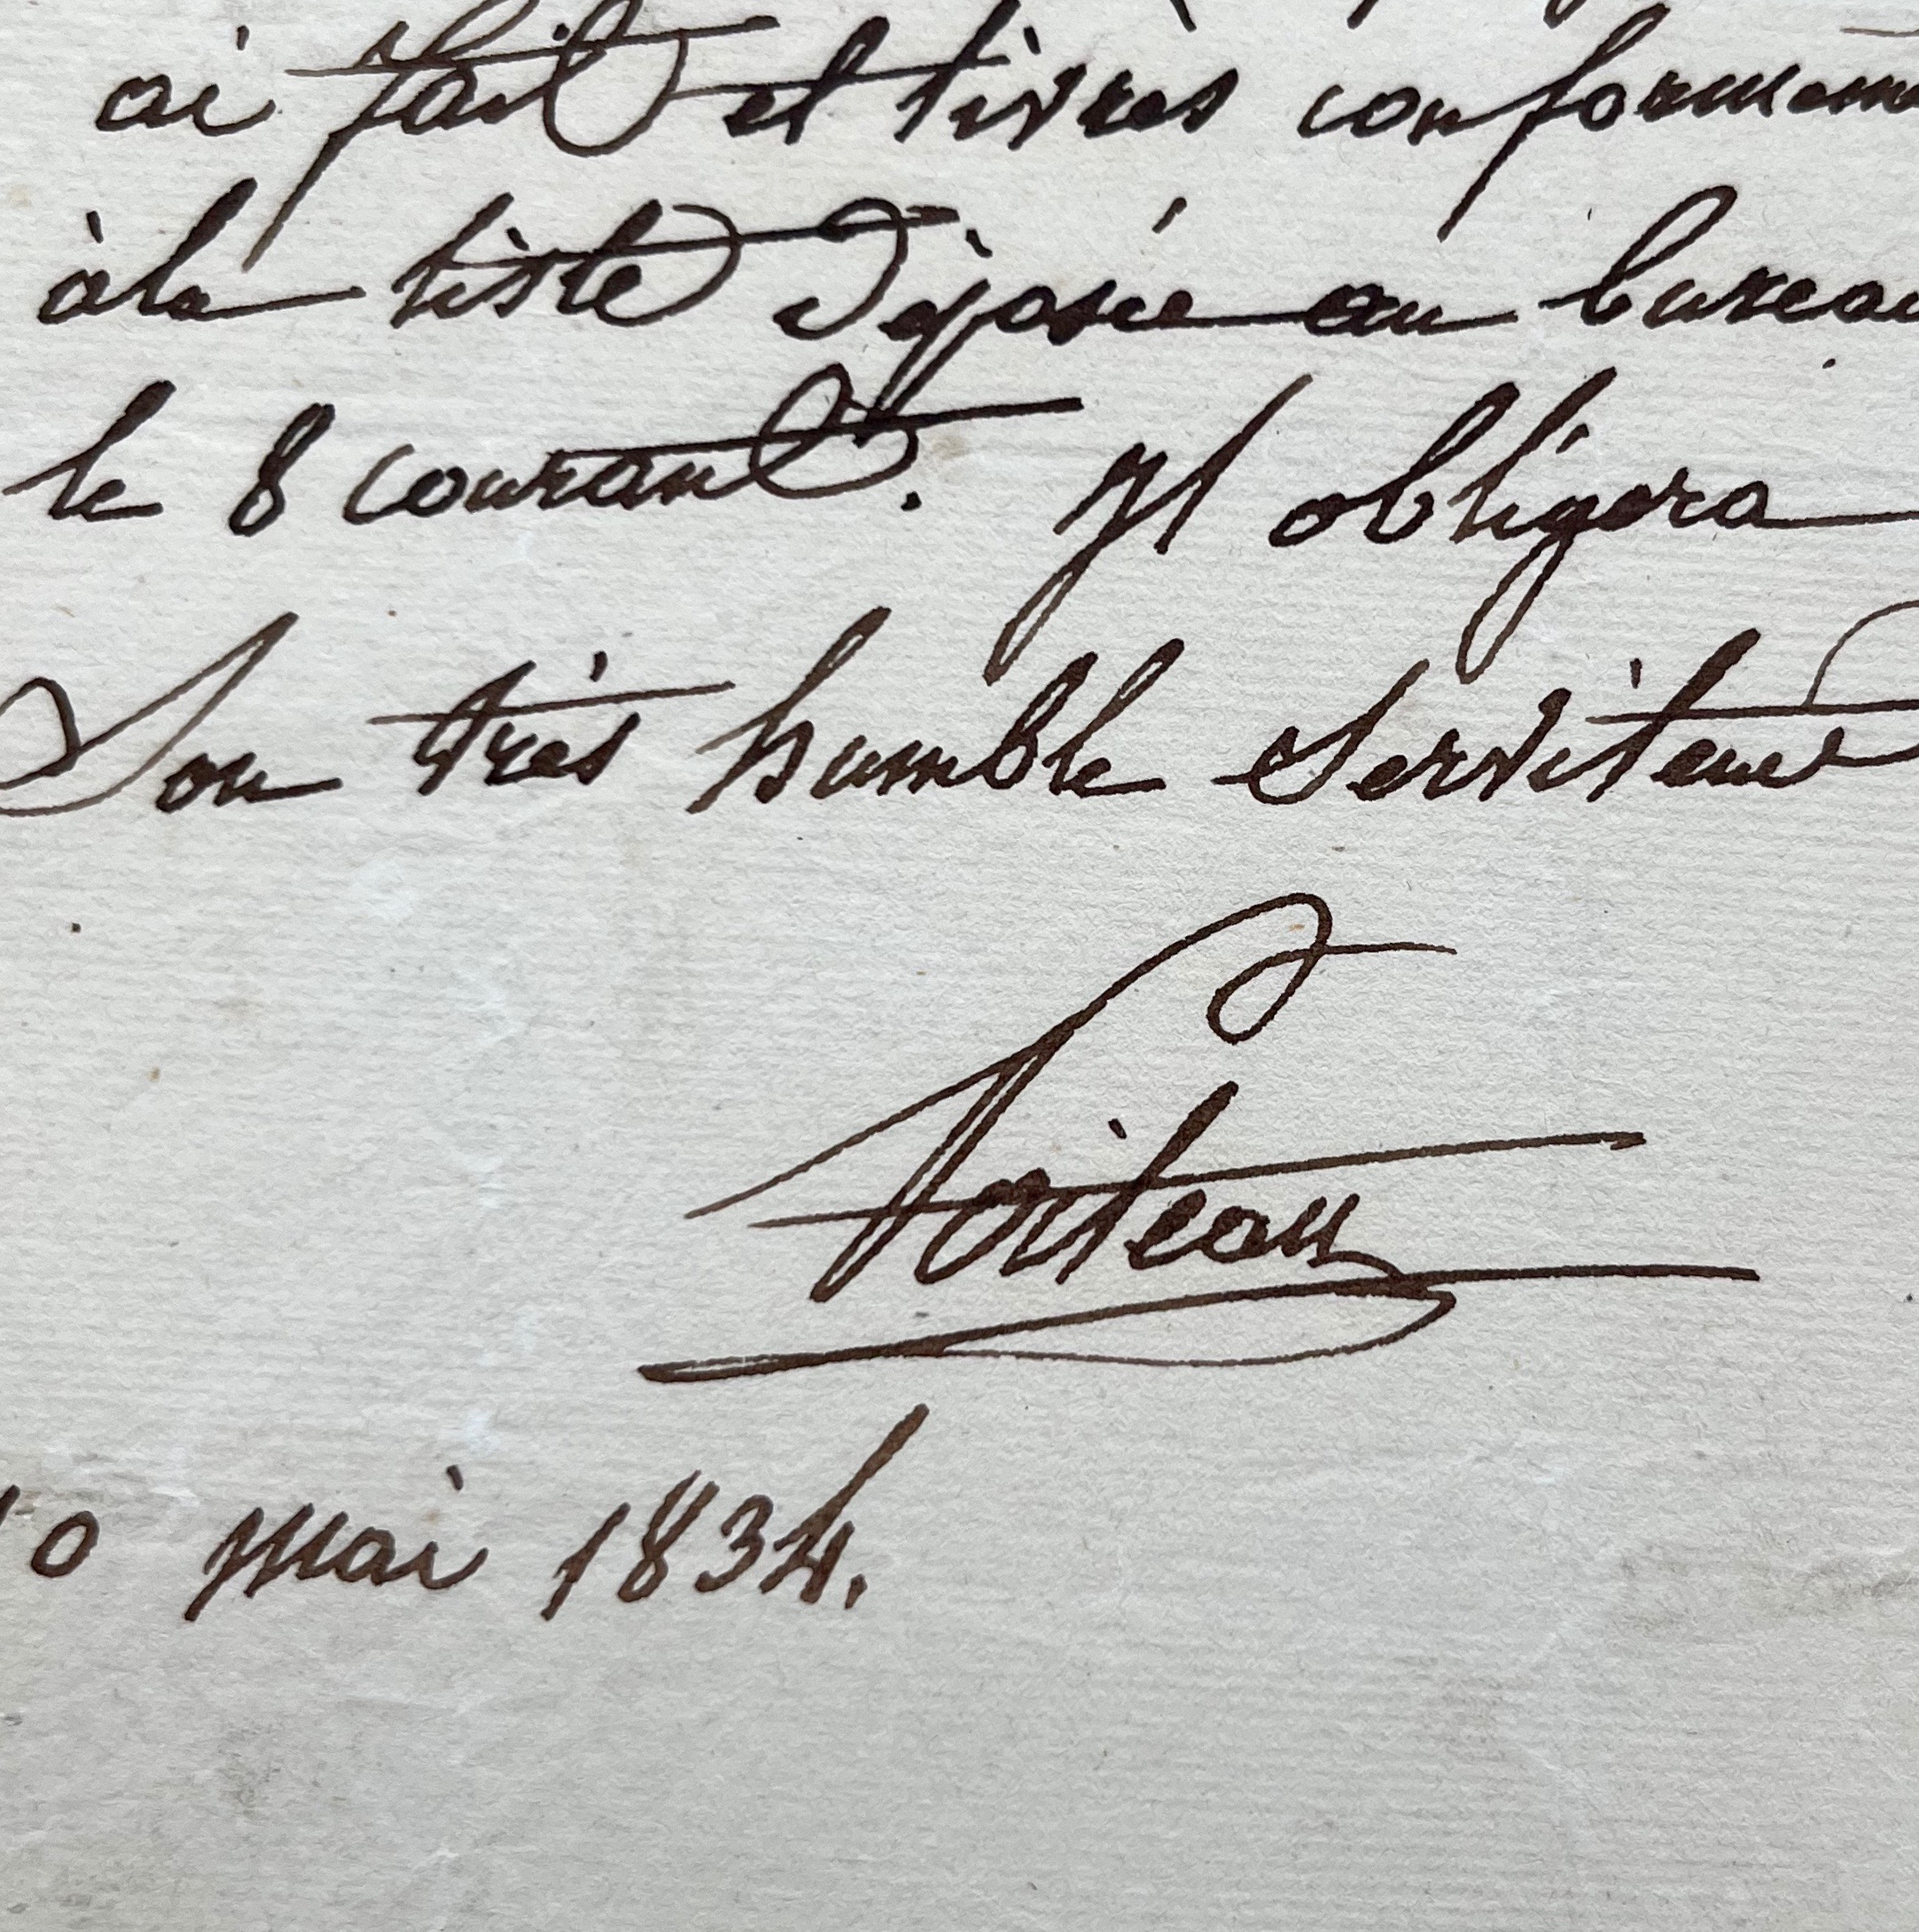 ai fait et livrés conformém
à la liste déposée au bureau
le 8 courant. Il obligera
Son très humble Serviteur
Poiteau
10 mai 1834.